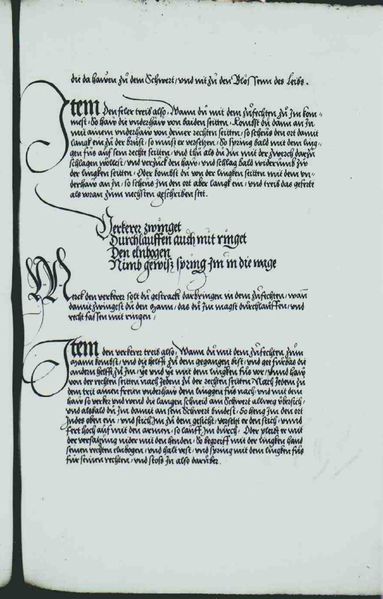 die da hawen zů dem Schwert / und nit zů den Blössenn des leibs.
Item Den feler treib also / Wann dů mit dem zůfechten zů Im kom-
mest / So haw die underhaw von baiden seitten / Kombst dů dann an In
mit ainem underhaw von deiner rechten seitten / so scheüs den ort damit
lanngk ein zů der brust / so můss er versetzen / So spring bald mit dem ling-
gen fůs auf sein recht seitten / und thů als dů Im mit der zwerch darzů
schlagen wöllest / und verzück den haw / und schlag bald widerumb zů
der lingken seitten / Oder kombst dů von der lingken seitten mit dem un-
derhaw an In / so scheüs In den ort aber lanngk ein / und treib das gefert
als voran zům nechsten geschriben stet.
Verkerer zwinget
Durchlauffen auch mit ringet
Den elnbogen
Nimb gewisz spring Im in die wage
Merck den verkerer solt dů gestrack darbringen in dem zůfechten / wan
damit zwingest dů den mann / das dů In magst durchlauffen / und
recht fassen mit ringen /
Item den verkerer treib also / Wann dů mit dem zůfechten zům
mann kombst / und die helfft zů dem gegangen bist / und get für das die
anndern helfft zů Im / ye und ye mit dem lingken fůs vor / Unnd haw
von der rechten seitten nach yedem zů der rechten seitten Nach yedem zů
dem trit ainen freien underhaw dem linggen fůs nach / und mit dem
haw so verker und wend die langen schneid am Schwert allweg übersich /
und alsbald dů Im damit an sein Schwert bindest / So heng Im den ort
Indes oben ein / und stich Im zů dem gesicht / versetzt er den stich / unnd
fert hoch auf mit den armen / so lauff Im durch / Oder pleibt er mit
der versatzung nider mit den henden / So begreiff mit der lingken hand
seinen rechten elnbogen / und halt vest / und spring mit dem lingken fůs
für seinen rechten / und stosz In also darüber.